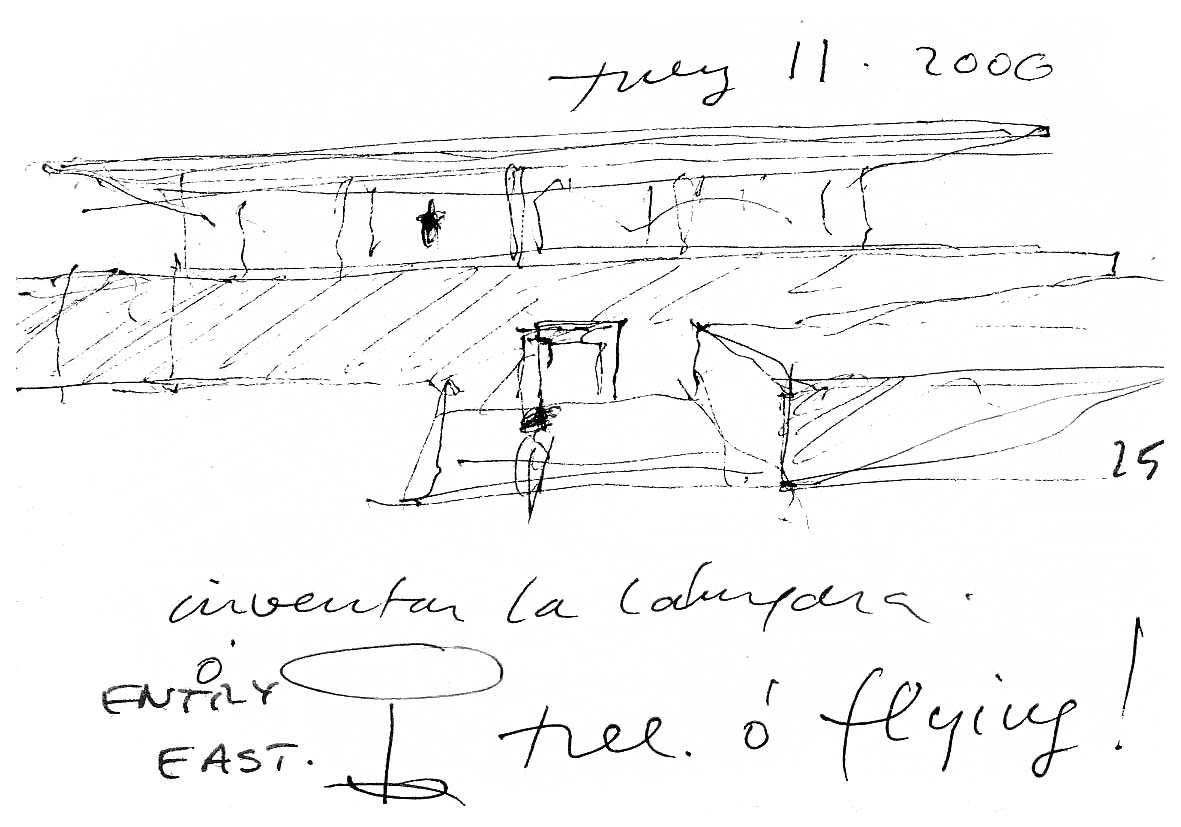 July 11 · 2006
25
inventar la
ó
ENTRY
EAST.
tree. ó flying!